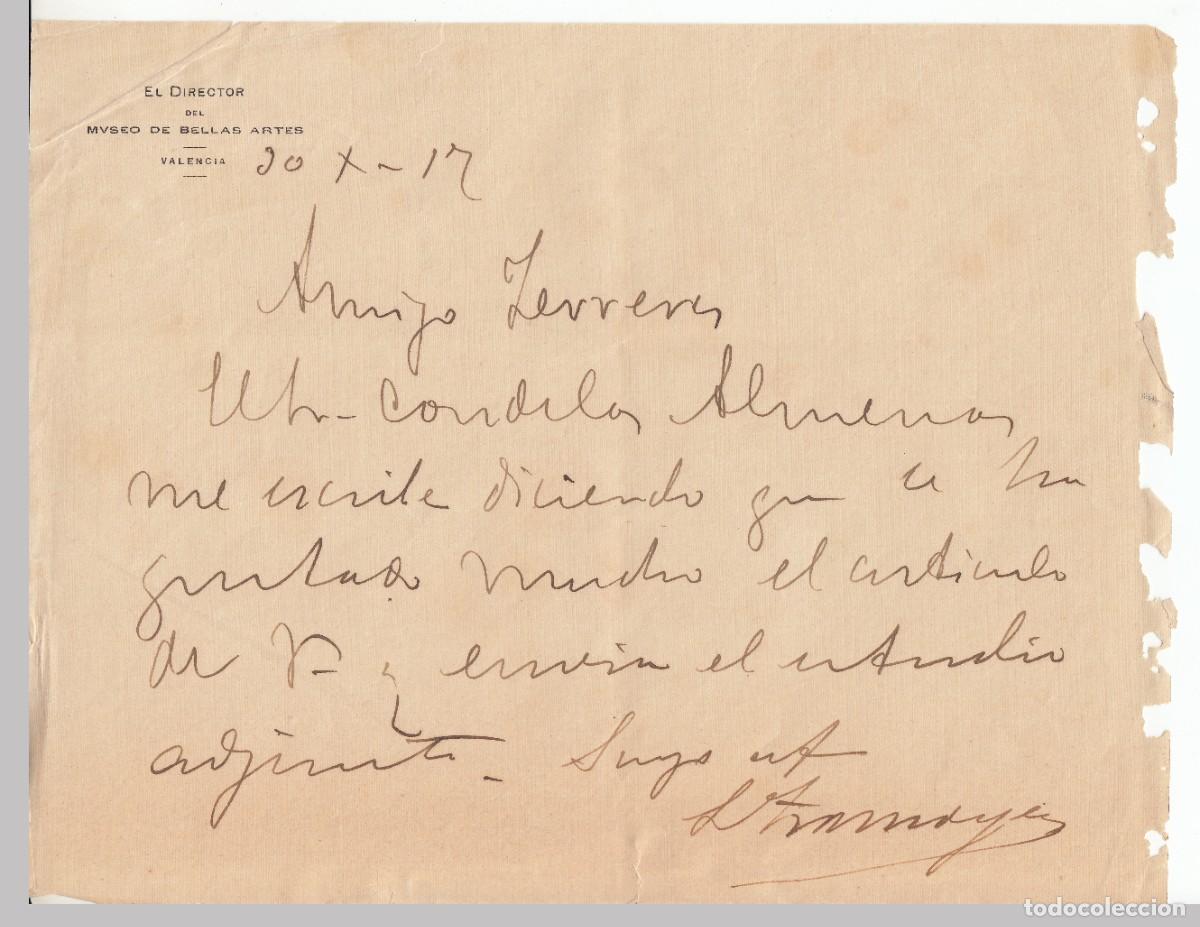 EL DIRECTOR
DEL
MVSEO DE BELLAS ARTES
VALENCIA
30 X - 17
Amigo
Conde las Almenas
me escribe diciendo que le ha
gustado mucho el articulo
de V. y envia el estudio
adjunto. Suyo af
todocoleccion